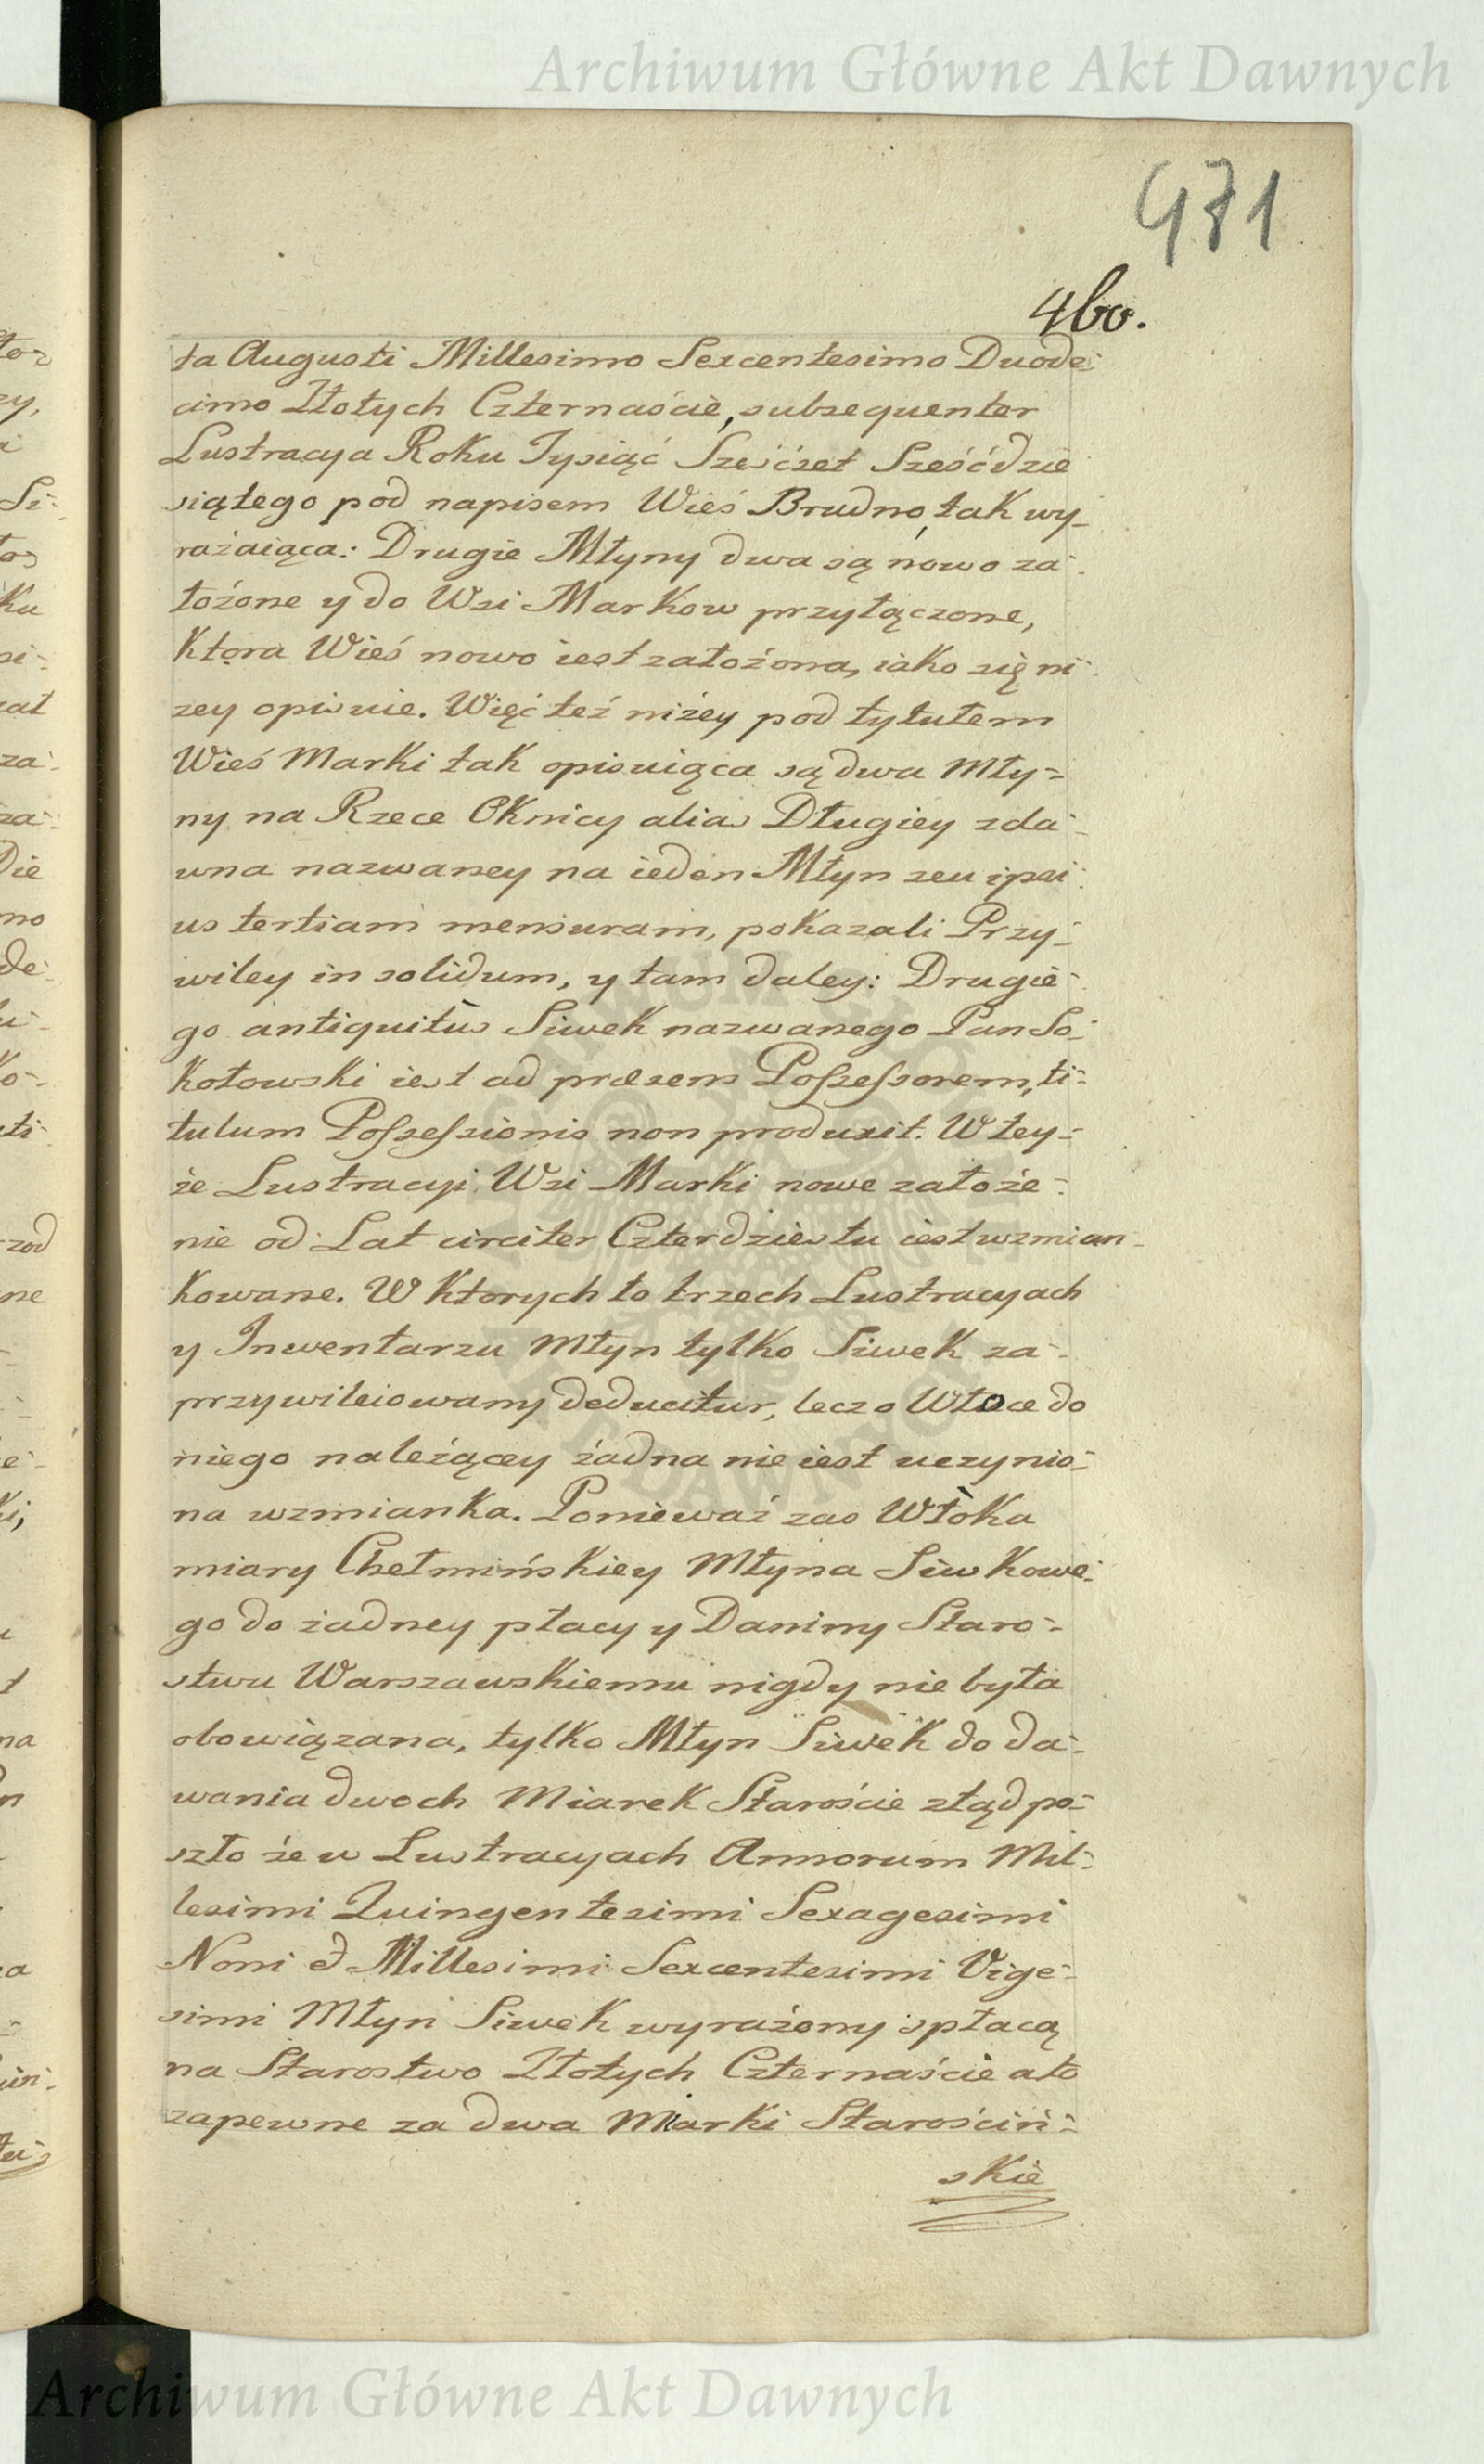 Archiwum Główne Akt Dawnych
471
460.
ta Augusti Millesimo Sexcentesimo Duode-
cimo Złotych Czternaście, subsequenter
Lustracya Roku Tysiąć Sześćset Sześćdzie
siątego pod napisem Wieś Brudno, tak wy-
rażaiąca: Drugie Młyny dwa są nowo za-
łożone y do Wsi Markow przyłączone,
Ktora Wieś nowo iest założona, iako się ni-
zey opisuie. Więć też niżey pod tytułem
Wieś Marki tak opisuiąca są dwa Mły-
ny na Rzece Oknicy alias Długiey zda-
wna nazwaney na ieden Młyn seu ipsi-
us tertiam mensuram, pokazali Przy-
wiley in solidum, y tam daley: Drugie-
go antiquitus Siwek nazwanego Pan So-
kołowski iest ad præsens Possessorem, ti-
tulum Possessionis non produxit. W tey-
że Lustracyi Wsi Marki nowe założe-
nie od Lat circiter Czterdziestu iest wzmian-
kowane. W Ktorych to trzech Lustracyach
y Inwentarzu Młyn tylko Siwek za-
przywileiowany deducitur, lecz o Włoce do
niego należącey żadna nie iest uczynio-
na wzmianka. Ponieważ zas Włoka
miary Chełmińskiey Młyna Siwkowe-
go do żadney płacy y Daniny Staro-
stwu Warszawskiemu nigdy nie była
obowiązana, tylko Młyn Siwek do da-
wania dwoch Miarek Staroście ztąd po-
szło że w Lustracyach Annorum Mil-
lesimi Quingentesimi Sexagesimi
Noni & Millesimi Sexcentesimi Vige-
simi Młyn Siwek wyrażony spłacą
na Starostwo Złotych Czternaście a to
zapewne za dwa Miarki Starościń-
skie
Archiwum Główne Akt Dawnych